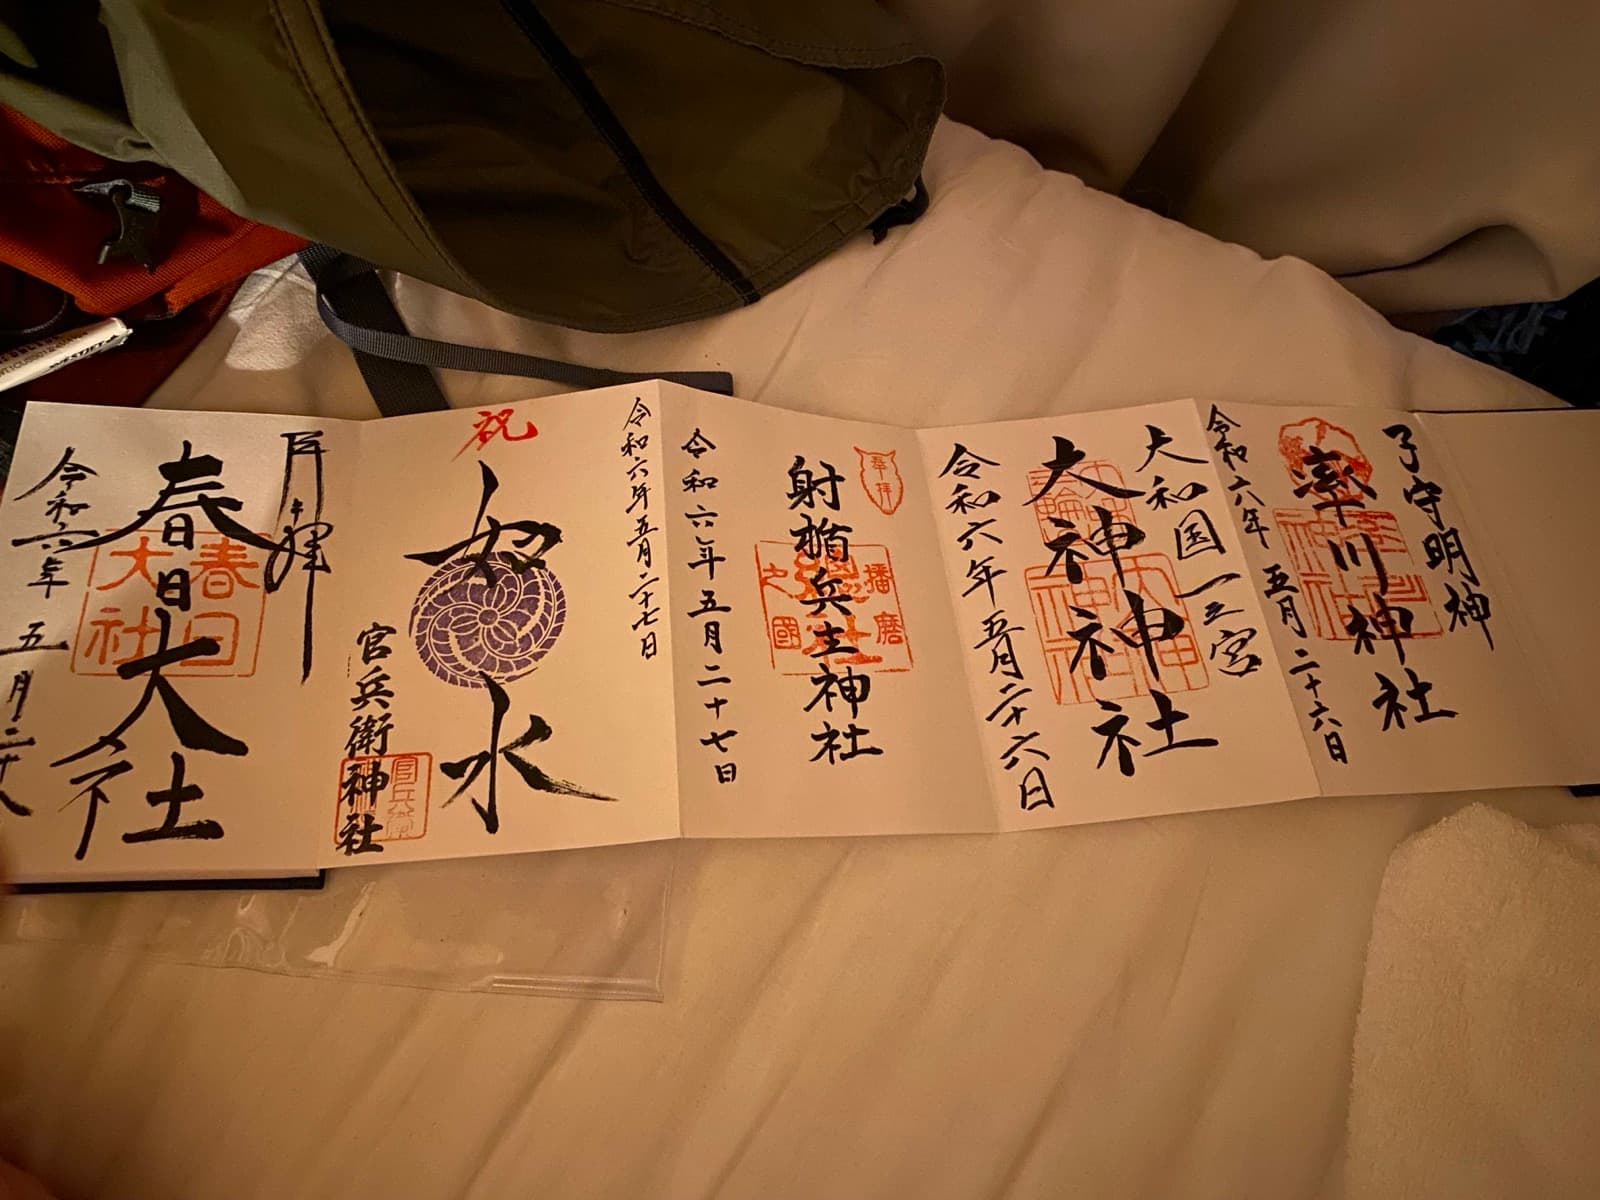 子守明神
率川神社
令和六年五月二十六日
大和国一之宮
大神神社
大神
神社
令和六年五月二十六日
奉拝
射楯兵主神社
播磨
之國
令和六年五月二十七日
令和六年五月二十七日
祝
如水
官兵衛神社
官兵衛
奉拝
春日大社
春日
大社
令和六年五月二十八